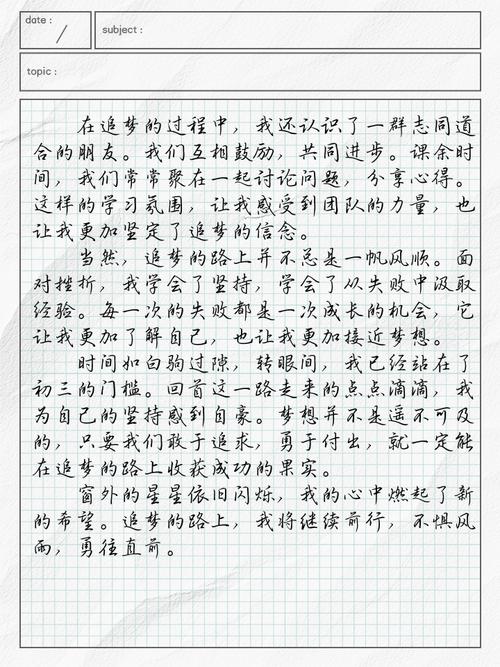 date :
/
subject :
topic :
在追梦的过程中，我还认识了一群志同道
合的朋友。我们互相鼓励，共同进步。课余时
间，我们常常聚在一起讨论问题，分享心得。
这样的学习氛围，让我感受到团队的力量，也
让我更加坚定了追梦的信念。
当然，追梦的路上并不总是一帆风顺。面
对挫折，我学会了坚持，学会了从失败中汲取
经验。每一次的失败都是一次成长的机会，它
让我更加了解自己，也让我更加接近梦想。
时间如白驹过隙，转眼间，我已经站在了
初三的门槛。回首这一路走来的点点滴滴，我
为自己的坚持感到自豪。梦想并不是遥不可及
的，只要我们敢于追求，勇于付出，就一定能
在追梦的路上收获成功的果实。
窗外的星星依旧闪烁，我的心中燃起了新
的希望。追梦的路上，我将继续前行，不惧风
雨，勇往直前。